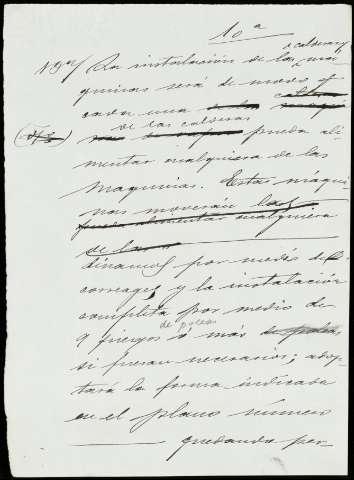 10ª
y calderas
La instalación de las má-
quinas será de modo q
cada una
de las calderas pueda ali-
mentar cualquiera de las
maquinas. Estas máqui-
nas moverán las
pueda alimentar cualquiera
de las
dinamos por medio de
correages y la instalación
completa por medio de
de poleas
9 juegos ó mas de poleas
si fueran necesarios; adop-
tará la forma indicada
en el plano número
quedando por